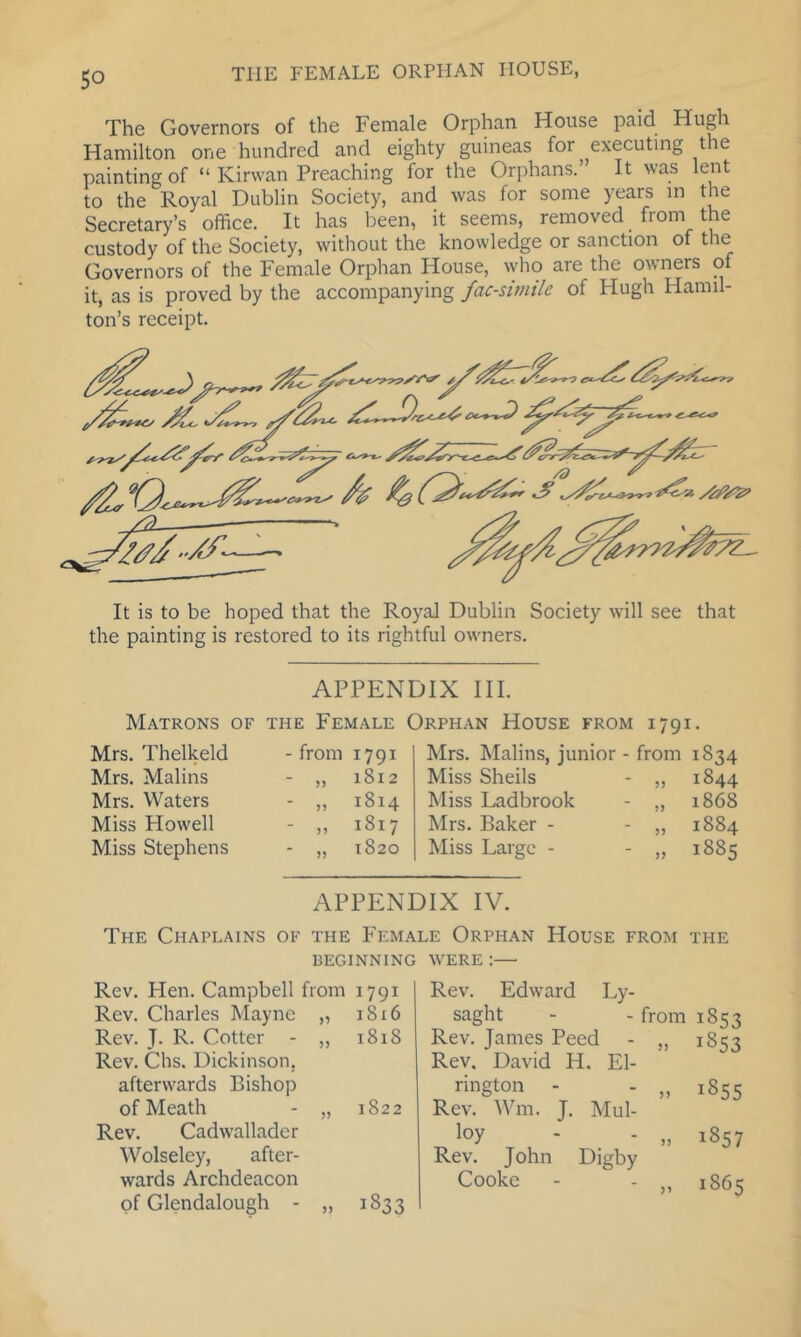 50
THE FEMALE ORPHAN HOUSE,
The Governors of the Female Orphan House paid Hugh
Hamilton one hundred and eighty guineas for executing the
painting of “ Kirwan Preaching for the Orphans.” It was lent
to the Royal Dublin Society, and was for some years in the
Secretary’s office. It has been, it seems, removed from the
custody of the Society, without the knowledge or sanction of the
Governors of the Female Orphan House, who are the owners of
it, as is proved by the accompanying fac-simile of Hugh Hamil-
ton’s receipt.
from the
House the Sum of One hundred and Eighty
in full for
Hugh Hamilton
It is to be hoped that the Royal Dublin Society will see that
the painting is restored to its rightful owners.
APPENDIX III.
MATRONS OF THE FEMALE ORPHAN HOUSE FROM 1791.
Mrs. Thelkeld - from 1791
Mrs. Malins - „ 1812
Mrs. Waters - „ 1814
Miss Howell - „ 1817
Miss Stephens - „ 1820
Mrs. Malins, junior - from 1834
Miss Sheils - „ 1844
Miss Ladbrook - „ 1868
Mrs. Baker - - „ 1884
Miss Large - - „ 1885
APPENDIX IV.
THE CHAPLAINS OF THE FEMALE ORPHAN HOUSE FROM THE
BEGINNING WERE :—
Rev. Hen. Campbell from 1791
Rev. Charles Mayne „ 1816
Rev. J. R. Cotter - „ 1818
Rev. Chs. Dickinson,
afterwards Bishop
of Meath - „ 1822
Rev. Cadwallader
Wolseley, after-
wards Archdeacon
of Glendalough - „ 1833
Rev. Edward Ly-
saght - - from 1853
Rev. James Peed - „ 1853
Rev. David H. El-
rington - - „ 1855
Rev. Wm. J. Mul-
loy - - „ 1857
Rev. John Digby
Cooke - - „ 1865